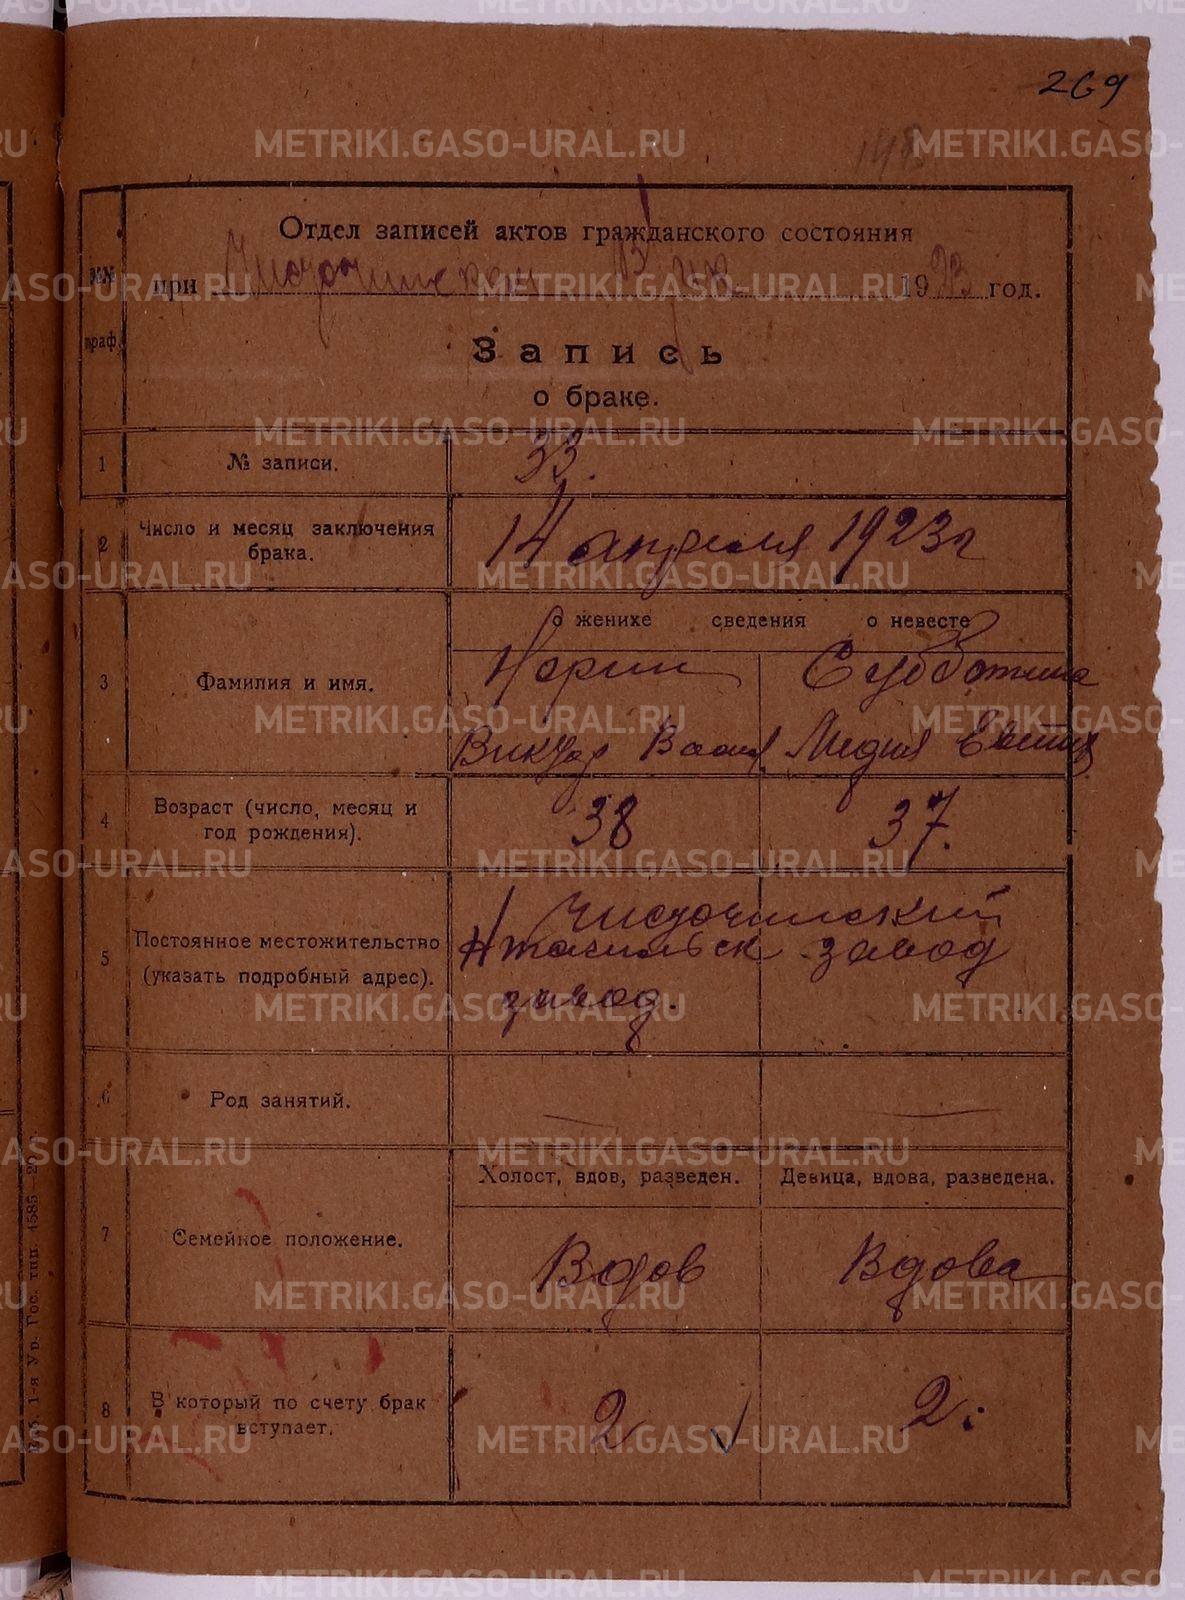 269
148
Отдел записей актов гражданского состояния
№№ граф.
при 1923 год.
Запись
о браке.
1 № записи. 33.
2 Число и месяц заключения брака. 14 апреля 1923 г
о женихе сведения о невесте
3 Фамилия и имя. Субботина
Виктор Васил. Лидия
4 Возраст (число, месяц и год рождения). 38 37.
Чусточинский
5 Постоянное местожительство завод
(указать подробный адрес).
6 Род занятий. — —
Холост, вдов, разведен. Девица, вдова, разведена.
7 Семейное положение. Вдов Вдова
8 В который по счету брак вступает. 2 2.
1-я Ур. Гос. тип. 4585
METRIKI.GASO-URAL.RU